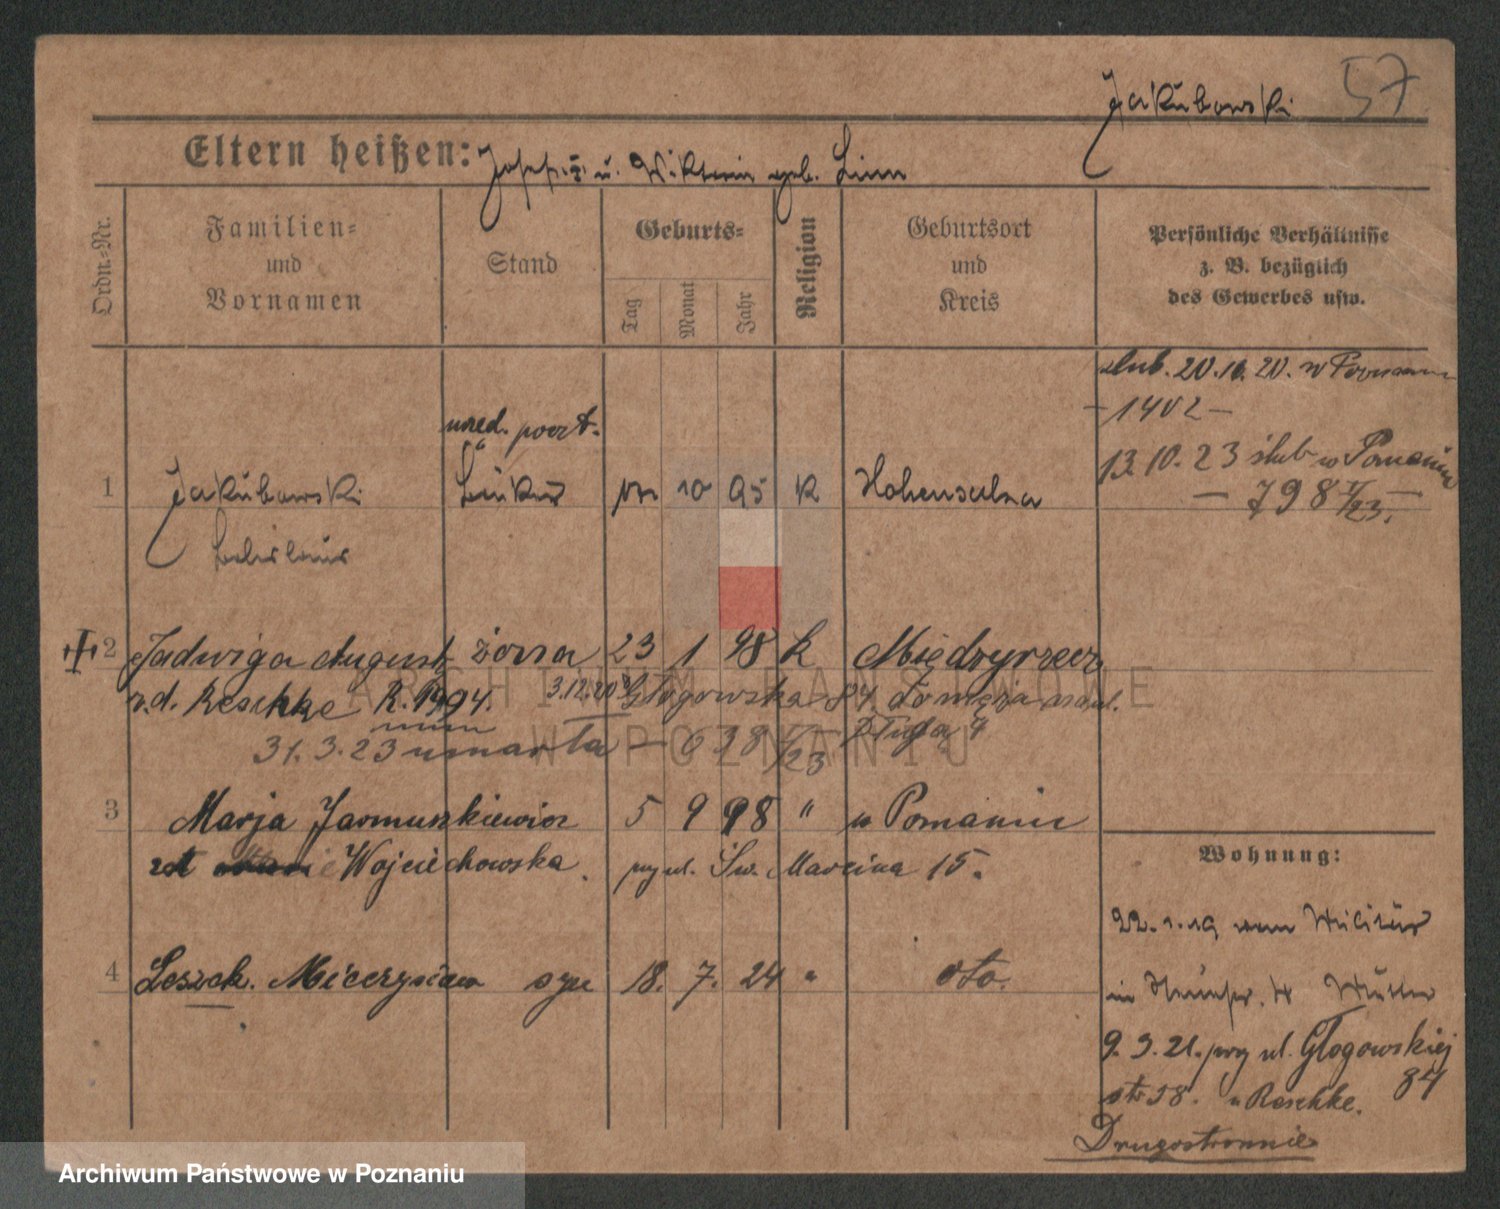 57
Jakubowski
Eltern heißen: Josef u. Wiktoria geb. Linn
Ordn.-Nr.
Familien- und Vornamen
Stand
Geburts-
Tag
Monat
Jahr
Religion
Geburtsort und Kreis
Persönliche Verhältnisse z. B. bezüglich des Gewerbes usw.
ślub. 20.10.20. w Poznaniu
- 1402 -
13.10.23 ślub w Poznaniu
- 798 V/23.
urzęd. poczt.
1 Jakubowski 10 95 K Hohensalza
2 Jadwiga August. żona 23 1 98 k Międzyrzecz
z.d. Reschke R. 1994. 3.12.20 Głogowska 84.
31.3.23 umarła - 638 /23 Długa 7
3 Marja Jarmuszkiewicz 5 9 98 " w Poznaniu
Wojciechowska. przy ul. Św. Marcina 15.
4 Leszek. Mieczysław syn 18. 7. 24 " oto.
Wohnung:
22.1.19 vom Militär
9.3.21. przy ul. Głogowskiej 84
u Reschke.
Drugostronnie
ARCHIWUM PAŃSTWOWE
W POZNANIU
Archiwum Państwowe w Poznaniu